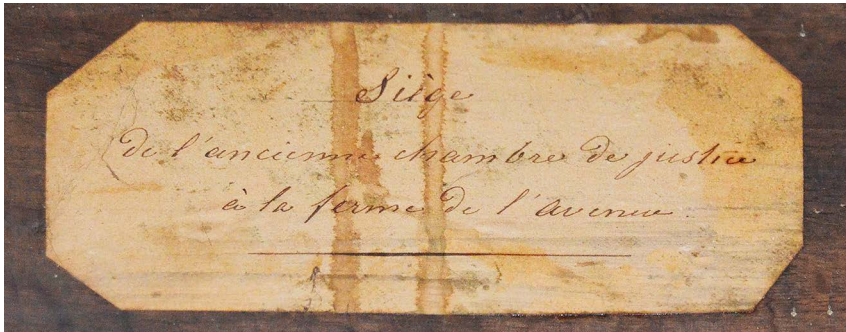 Siège
de l'ancienne chambre de justice
à la ferme de l'avenue